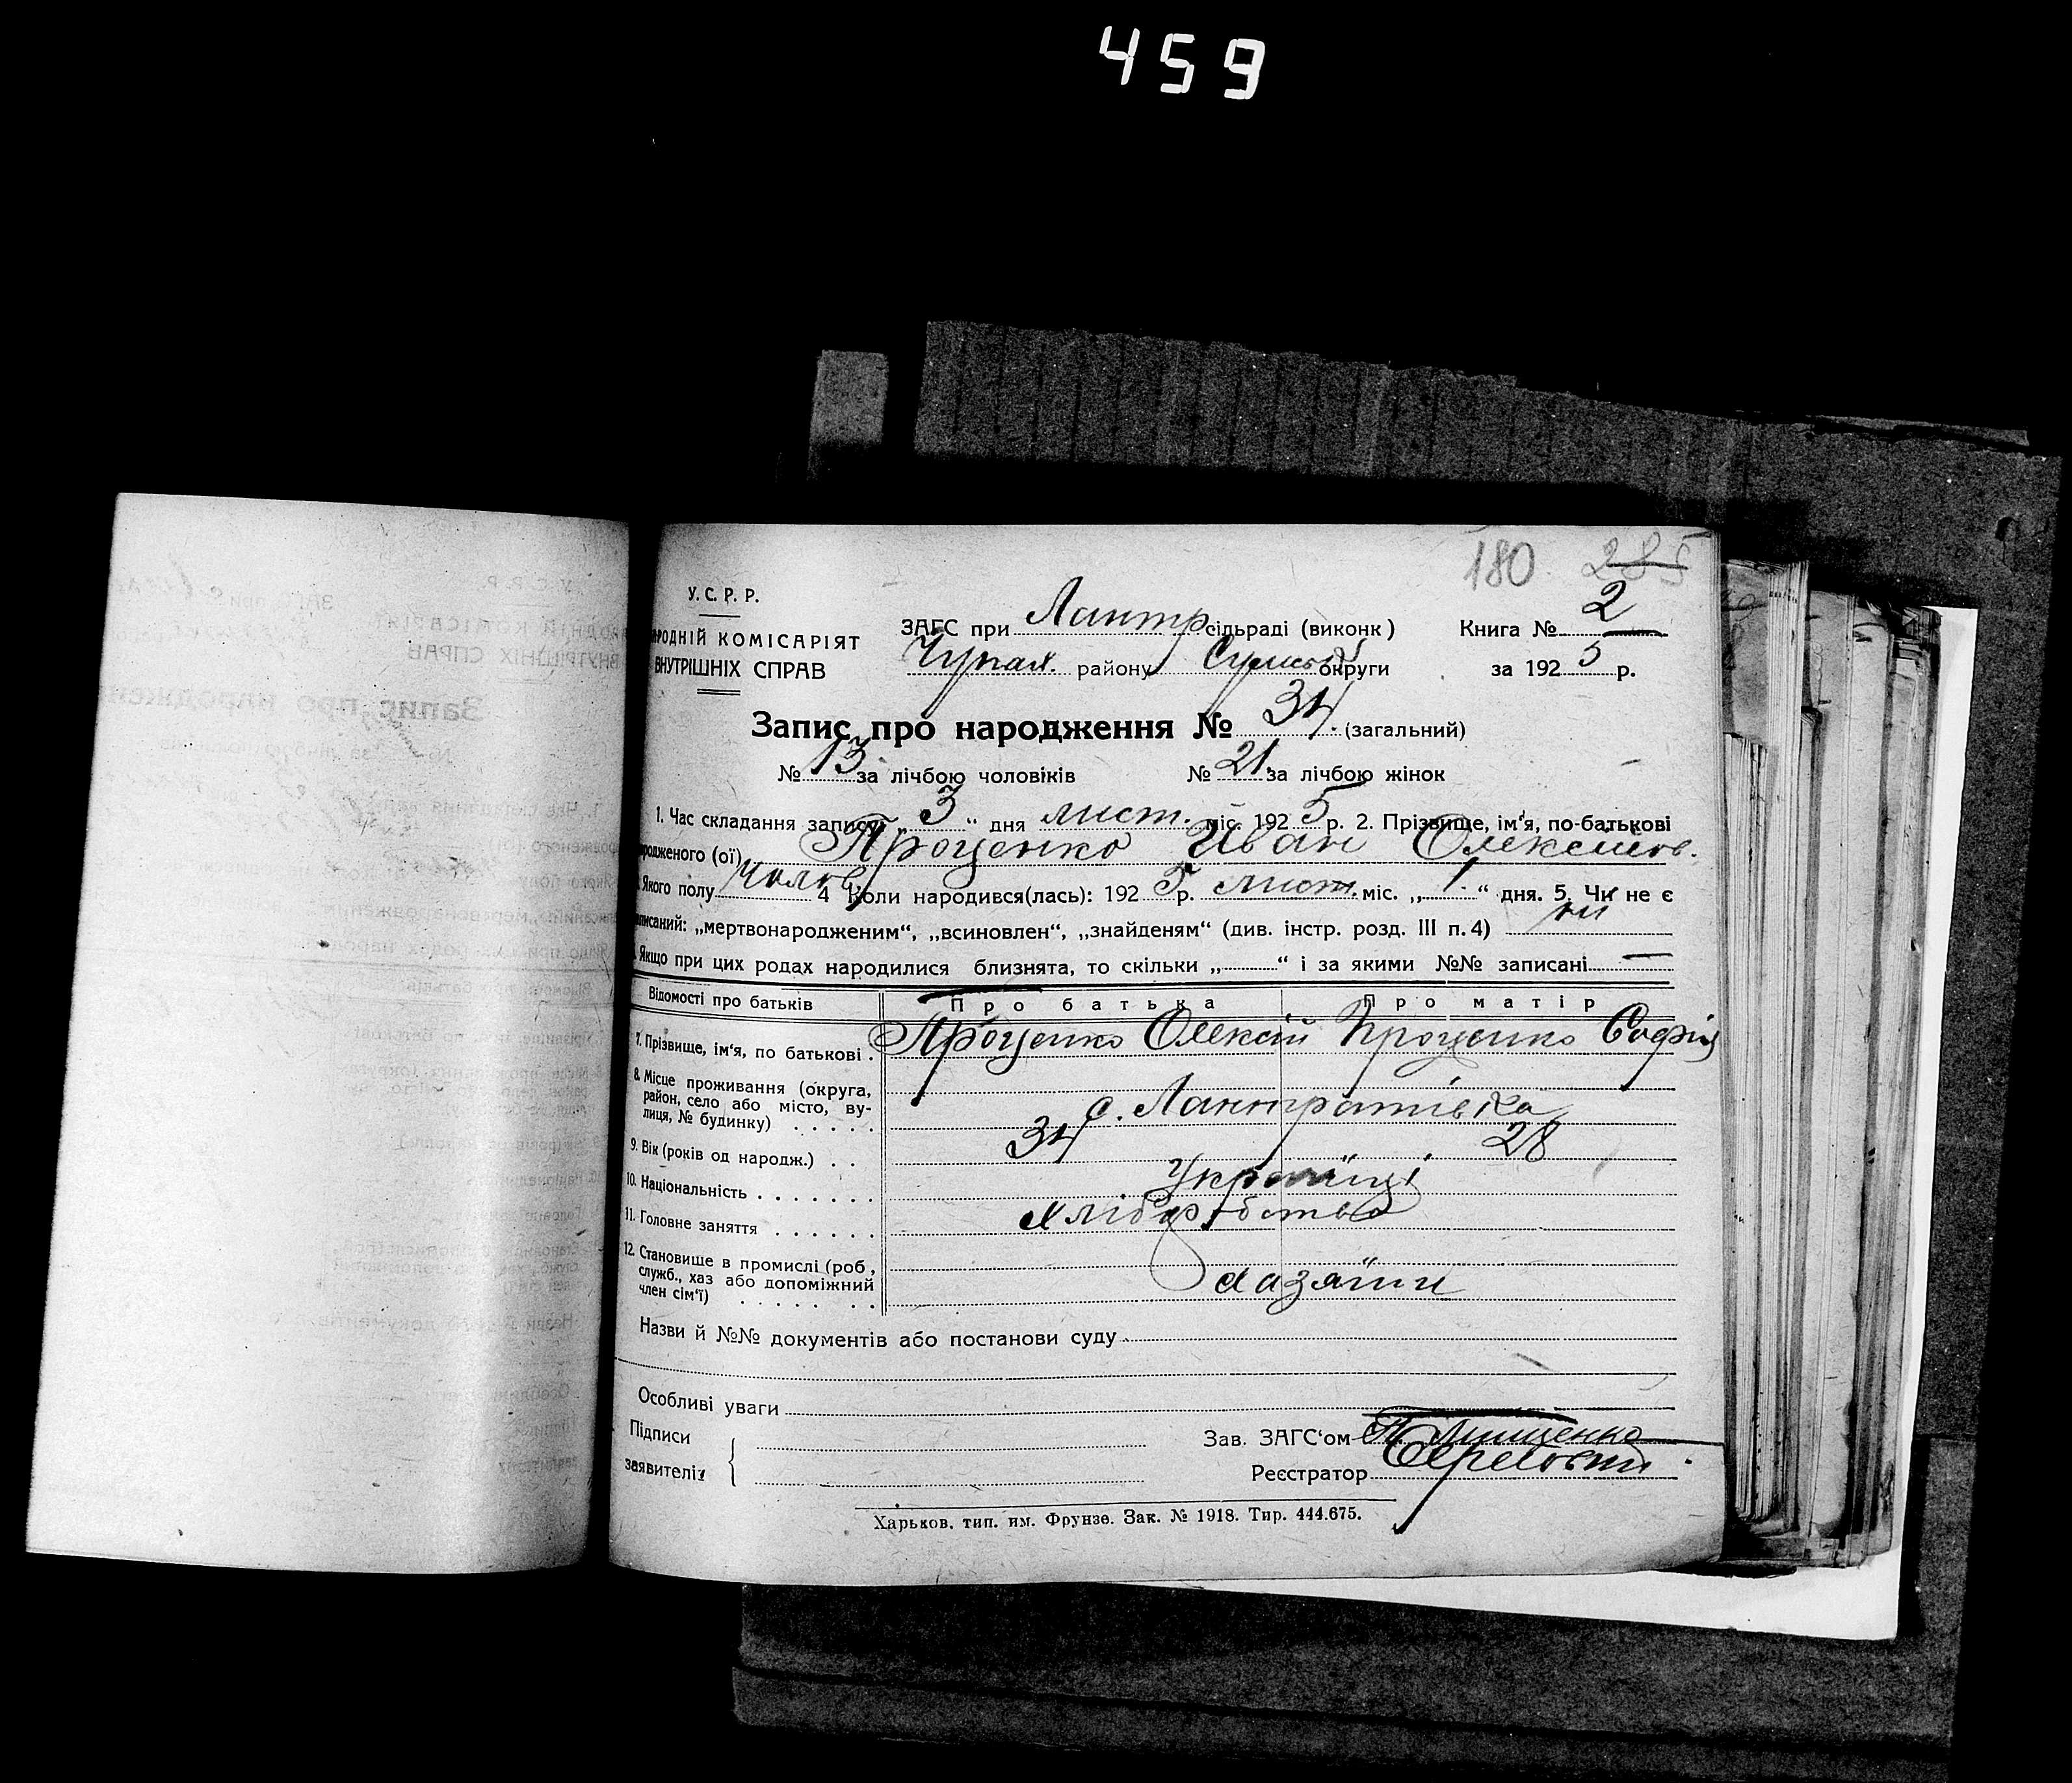 459
180 285
У. С. Р. Р.
НАРОДНІЙ КОМІСАРІЯТ
ВНУТРІШНІХ СПРАВ
ЗАГС при Лантр сільраді (виконк)
Чупах. району Сумської округи
Книга № 2
за 1925 р.
Запис про народження № 34. (загальний)
№ 13 за лічбою чоловіків № 21. за лічбою жінок
1. Час складання запису „3“ дня лист. міс. 1925 р. 2. Прізвище, ім'я, по-батькові
родженого (ої) Проценко Иван Олексієв.
Якого полу чолов. 4 Коли народився(лась): 1925 р. лист. міс. „1“ дня. 5. Чи не є
записаний: „мертвонародженим“, „всиновлен“, „знайденям“ (див. інстр. розд. III п. 4) ни
Якщо при цих родах народилися близнята, то скільки „ “ і за якими №№ записані —
Відомості про батьків Про батька Про матір
7. Прізвище, ім'я, по батькові . Проценко Олексій Проценко Софія
8. Місце проживання (округа,
район, село або місто, ву-
лиця, № будинку) с. Лантратівка
9. Вік (років од народж.) 34 28
10. Національність Українці
11. Головне заняття Хліборобство
12. Становище в промислі (роб,
служб., хаз або допоміжний
член сім'ї) хазяїни
Назви й №№ документів або постанови суду
Особливі уваги
Підписи
заявителів
Зав. ЗАГС'ом
Реєстратор
Харьков, тип. им. Фрунзе. Зак. № 1918. Тир. 444.675.